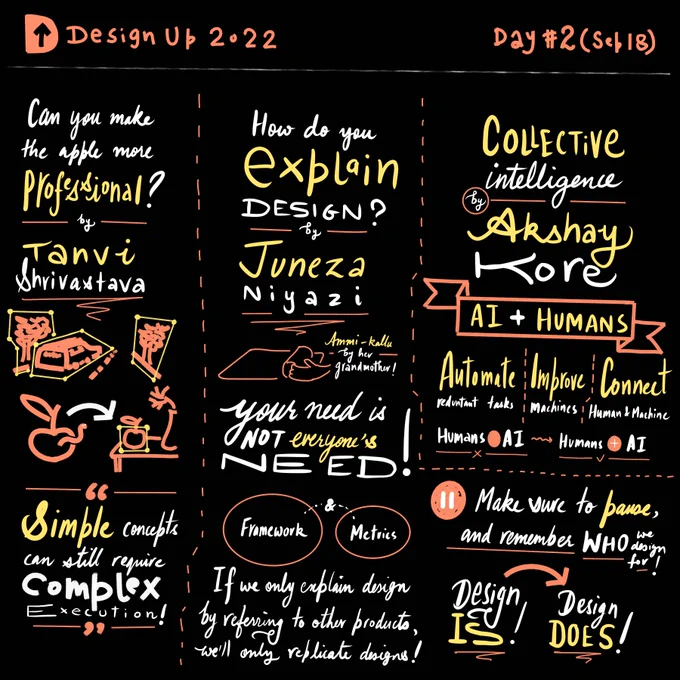 D Design Up 2022
Day #2 (Sep 18)
Can you make
the apple more
Professional?
by
Tanvi
Shrivastava
“
Simple concepts
can still require
Complex
Execution!
”
How do you
explain
DESIGN?
by
Juneza
Niyazi
Ammi-kallu
by her
grandmother!
your need is
NOT everyone's
NEED!
Framework & Metrics
If we only explain design
by referring to other products,
we'll only replicate designs!
COLLECTIVE
intelligence
by
Akshay
Kore
AI + HUMANS
Automate
reduntant tasks
Improve
Machines
Connect
Human & Machine
Humans AI
x
Humans + AI
✓
Make sure to pause,
and remember WHO we
design
for!
Design
IS!
Design
DOES!